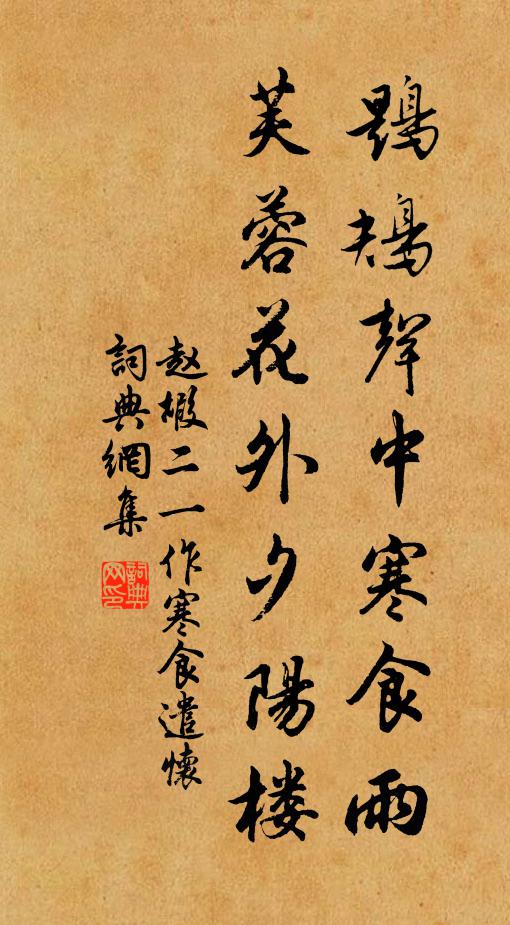 鶗鴂聲中寒食雨
芙蓉花外夕陽楼
赵椵二一作寒食遣懷
詞典網集
詞典网印